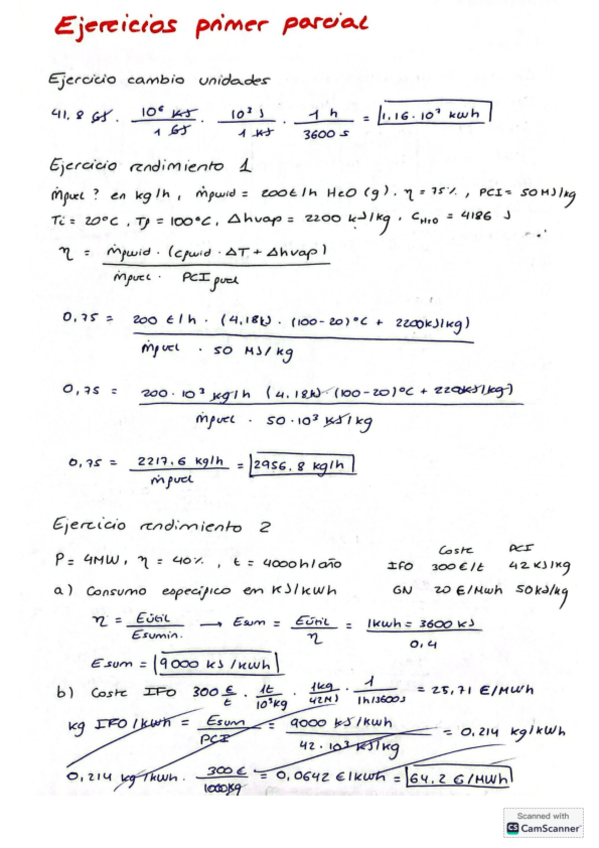 Ejercicios primer parcial
Ejercicio cambio unidades
41.8 GJ · 10⁶ KJ / 1 GJ · 10³ J / 1 KJ · 1 h / 3600 s = 1.16 · 10⁷ kWh
Ejercicio rendimiento 1
ṁfuel ? en kg/h, ṁfluid = 200 t/h H2O (g). η = 75%, PCI = 50 MJ/kg
Ti = 20°C, Tf = 100°C, Δhvap = 2200 kJ/kg. CH2O = 4186 J
η = ṁfluid · (Cfluid · ΔT + Δhvap) / ṁfuel · PCI fuel
0,75 = 200 t/h · (4,18 kJ · (100-20)°C + 2200 kJ/kg) / ṁfuel · 50 MJ/kg
0,75 = 200 · 10³ kg/h (4,18 kJ · (100-20)°C + 2200 kJ/kg) / ṁfuel · 50 · 10³ kJ/kg
0,75 = 2217.6 kg/h / ṁfuel = 2956.8 kg/h
Ejercicio rendimiento 2
Coste PCI
P = 4MW, η = 40%, t = 4000h/año IFO 300 €/t 42 KJ/kg
a) Consumo específico em KJ/kWh GN 20 €/Mwh 50 kJ/kg
η = Eútil / Esumin. → Esum = Eútil / η = 1kWh = 3600 kJ / 0,4
Esum = 9000 kJ/kWh
b) Coste IFO 300 € / t · 1t / 10³kg · 1kg / 42MJ · 1 / 1h/3600s = 25,71 €/MWh
kg IFO/kWh = Esum / PCI = 9000 kJ/kWh / 42 · 10³ kJ/kg = 0,214 kg/kWh
0,214 kg/kWh · 300 € / 1000kg = 0,0642 €/kWh = 64.2 €/MWh
Scanned with
CS CamScanner